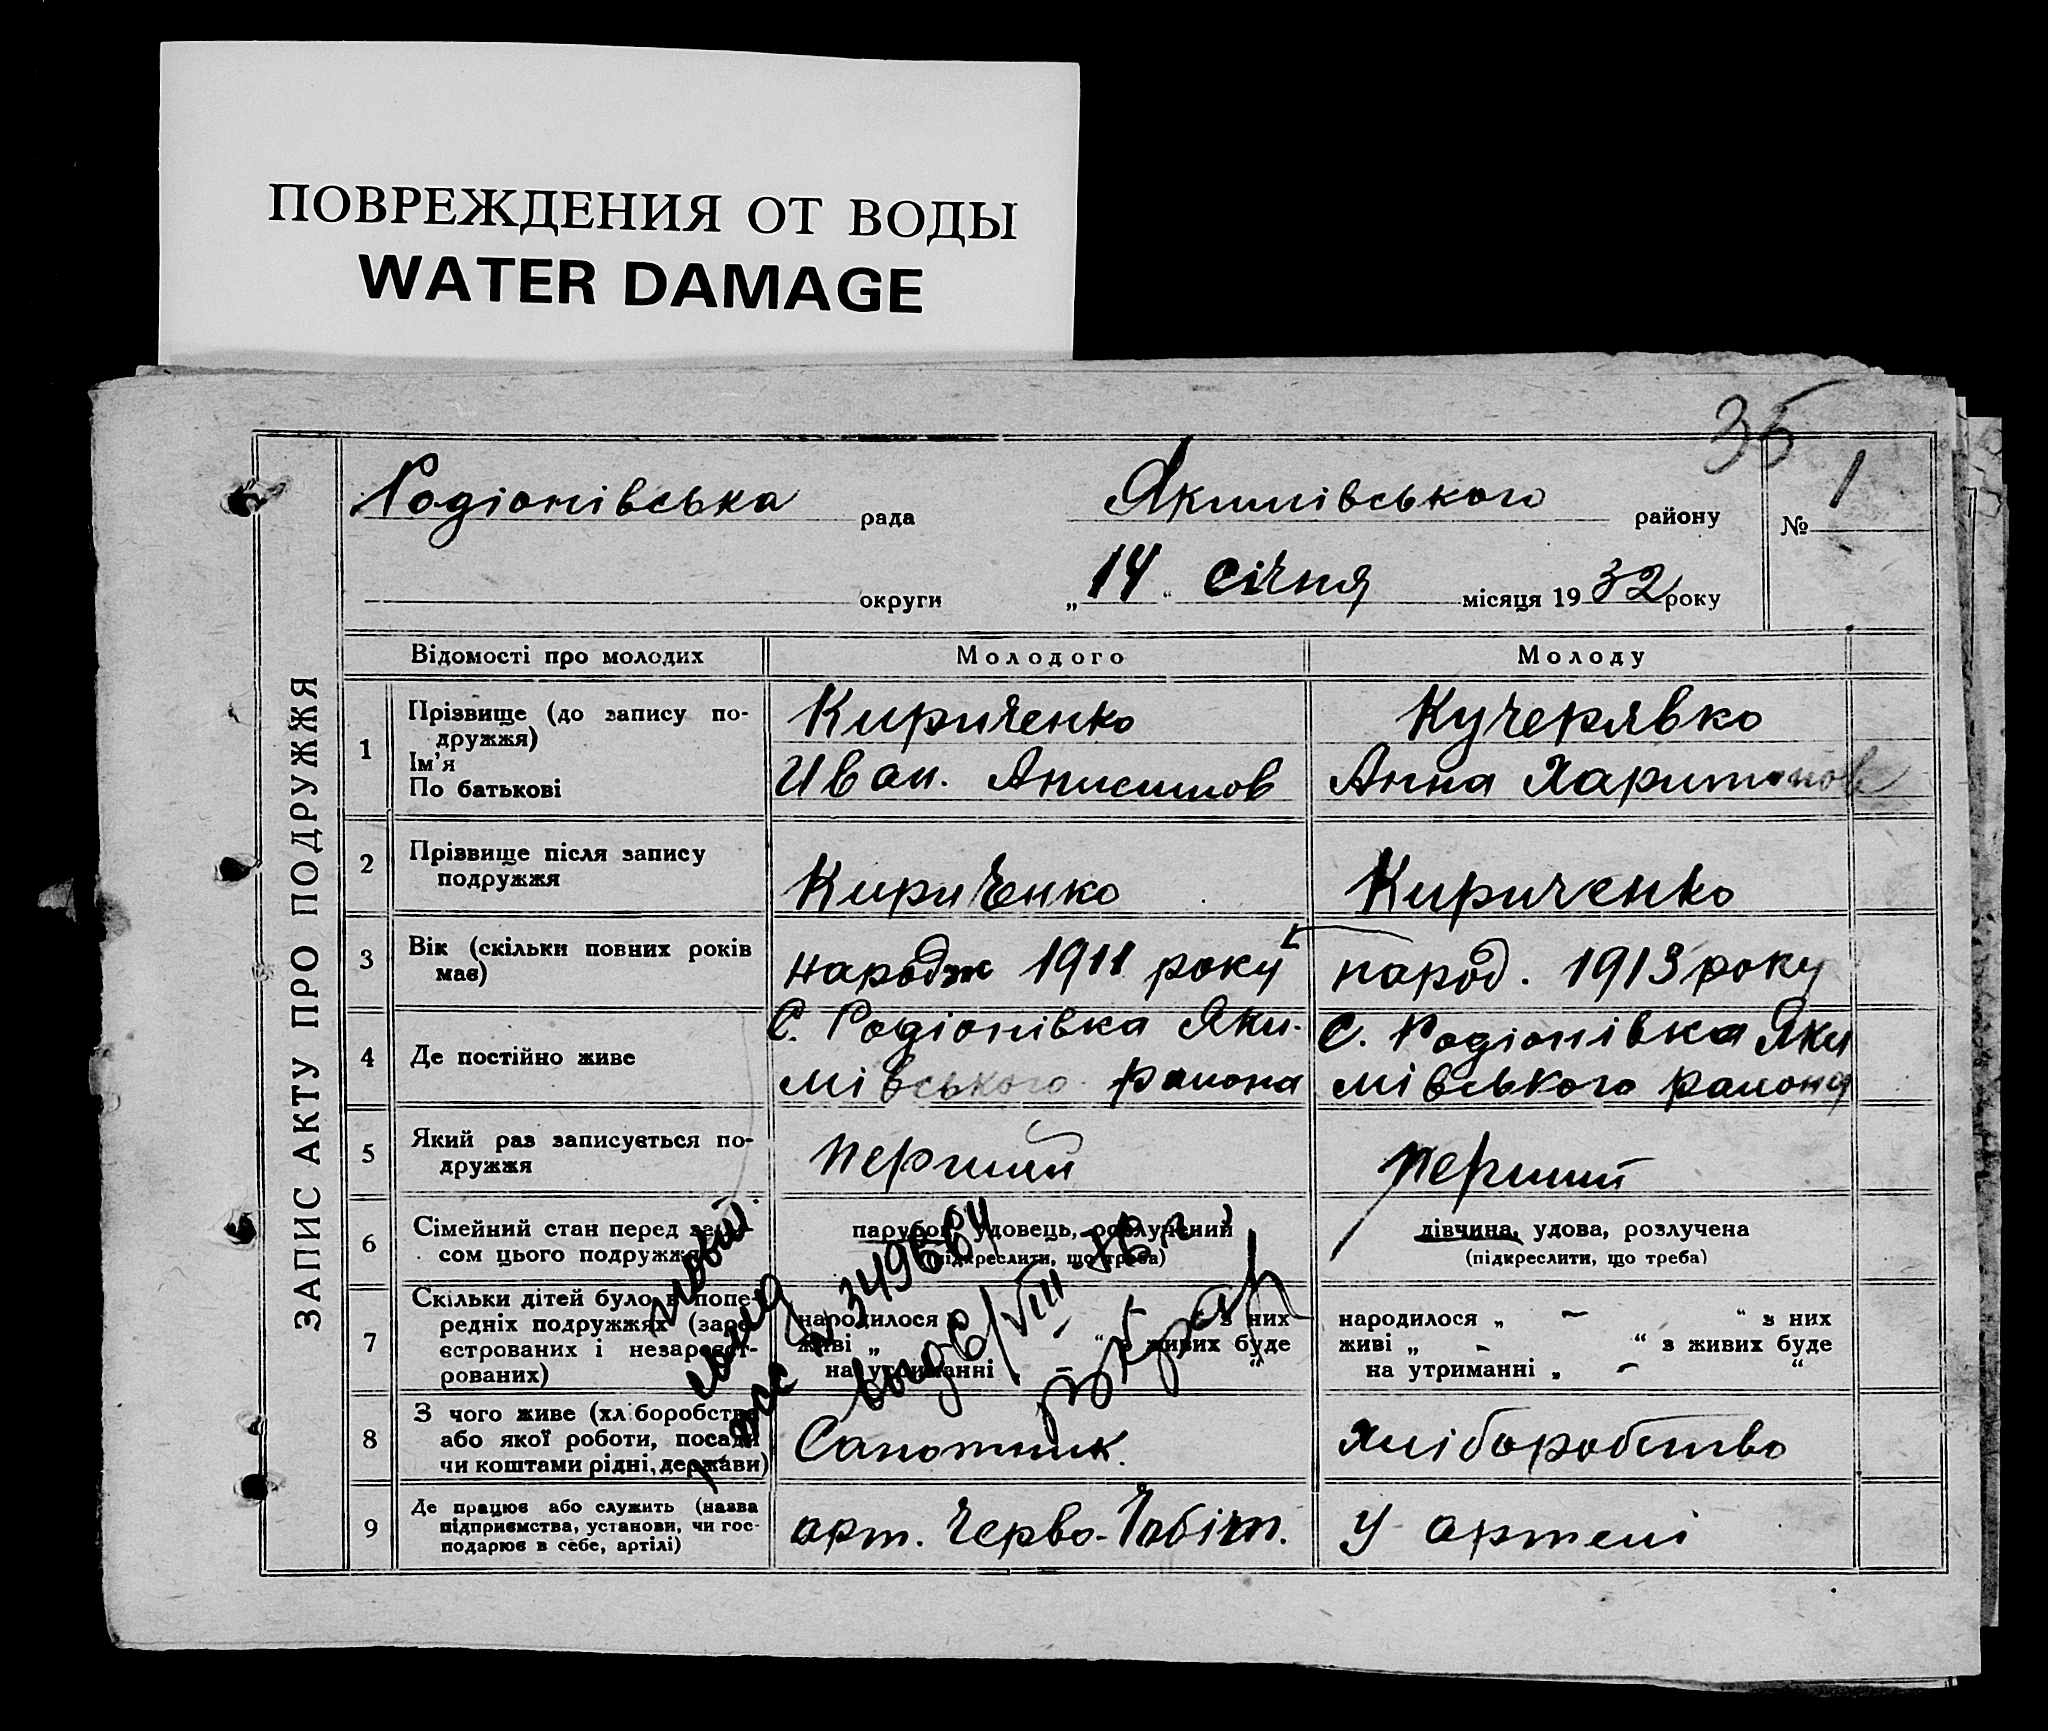 ПОВРЕЖДЕНИЯ ОТ ВОДЫ
WATER DAMAGE
35
ЗАПИС АКТУ ПРО ПОДРУЖЖЯ
Родіонівська рада Якимівського району № 1
округи „14“ січня місяця 1932 року
Відомості про молодих Молодого Молоду
1 Прізвище (до запису по-
дружжя)
Ім’я
По батькові
Кириченко
Иван. Анисимов
Кучерявко
Анна Харитонов
2 Прізвище після запису
подружжя
Кириченко
Кириченко
3 Вік (скільки повних років
має)
народж 1911 року
народ. 1913 року
4 Де постійно живе
С. Родіонівка Яки-
мівського района
С. Родіонівка Яки
мівського района
5 Який раз записується по-
дружжя
перший
перший
6 Сімейний стан перед запи-
сом цього подружжя
парубок, удовець, розлучений
(підкреслити, що треба)
дівчина, удова, розлучена
(підкреслити, що треба)
7 Скільки дітей було в попе-
редніх подружжях (заре-
єстрованих і незареєст-
рованих)
народилося „ - “ з них
живі „ - “ з живих буде
на утриманні - “
народилося „ - “ з них
живі „ - “ з живих буде
на утриманні „ - “
8 З чого живе (хліборобства
або якої роботи, посади
чи коштами рідні, держави)
Сапожник.
хліборобство
9 Де працює або служить (назва
підприємства, установи, чи гос-
подарює в себе, артілі)
арт. Черво-
У артелі
№ 349664
VIII